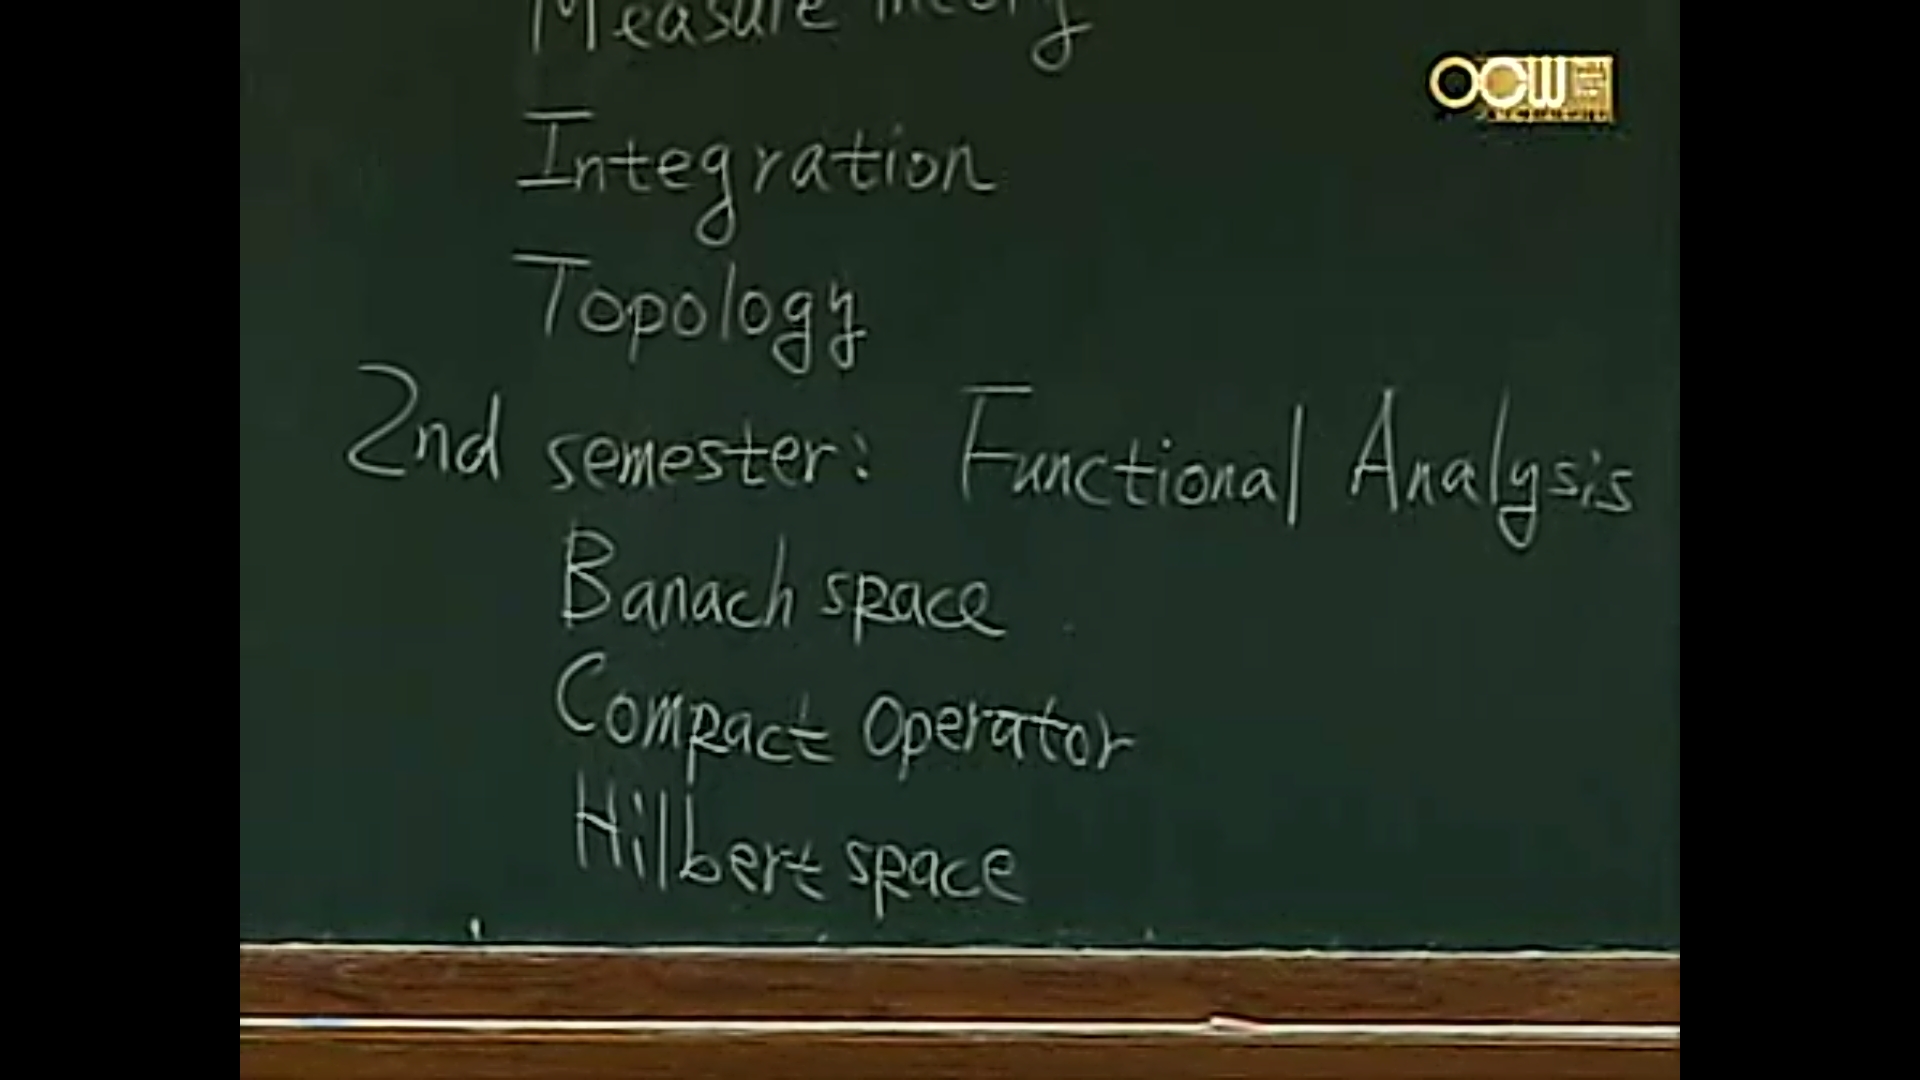 Measure theory
Integration
Topology
2nd semester: Functional Analysis
Banach space
Compact Operator
Hilbert space
OCW